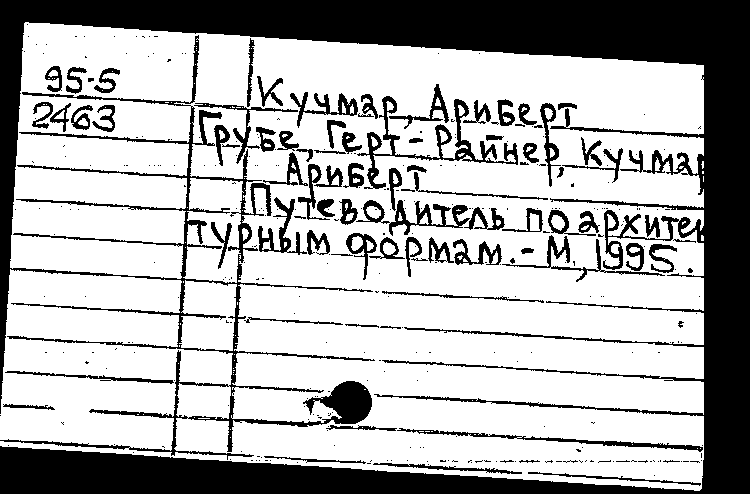 95-5
2463
Кучмар, Ариберт
Грубе, Герт-Райнер, Кучмар
Ариберт
Путеводитель по архитек
турным формам.-М, 1995.